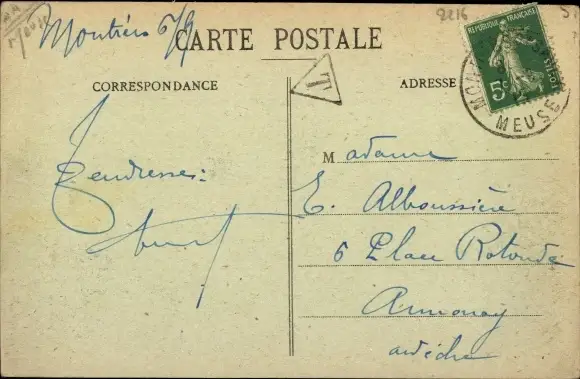 Montiers 6/9
9216
CARTE POSTALE
CORRESPONDANCE
ADRESSE
T
RÉPUBLIQUE FRANÇAISE
5c
POSTES
MEUSE
Tendresses:
Madame
E. Alboussière
6 Place Rotonde
Annonay
ardèche